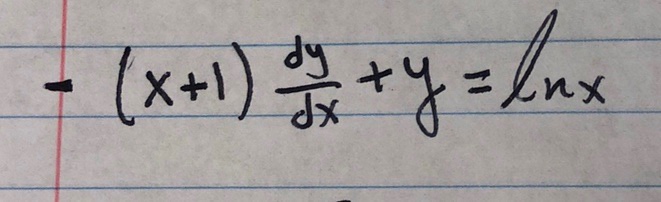 - (x+1) dy/dx + y = ln x